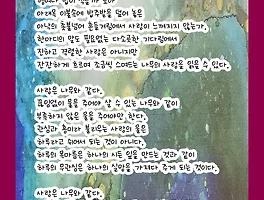 아래목 이불속에 밥주발을 덮어 놓은
아낙의 촛불넘어 흔들거림에서 사랑이 느껴지지 않는가.
한마디의 말도 필요없는 다소곳한 기다림에서
진하고 격렬한 사랑은 아니지만
잔잔하게 흐르며 조금씩 스며드는 나무의 사랑을 읽을 수 있다.
사랑은 나무와 같다.
끊임없이 물을 주어야 살 수 있는 나무와 같이
부족하지 않은 물을 주어야만 한다.
관심과 흥미라 불리우는 사랑의 물은
하루라고 쉬어서 되는 것이 아니다.
하루의 목마름은 하나의 시든 잎을 만드는 것과 같이
하루의 무관심은 하나의 실망을 가져다 주게 되는 것이다.
사랑은 나무와 같다.